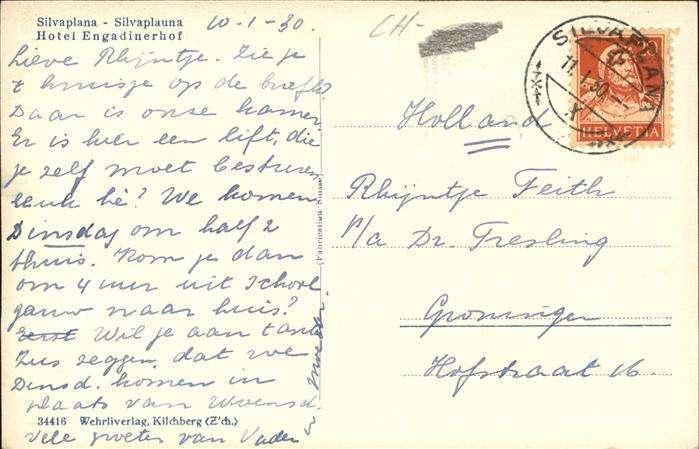 Silvaplana - Silvaplauna
Hotel Engadinerhof
10-1-30.
Lieve Rhijntje. Zie je
't kruisje op de briefk?
Daar is onze kamer.
Er is hier een lift, die
je zelf moet besturen
leuk hè? We komen
Dinsdag om half 2
thuis. Kom je dan
om 4 uur uit school
gauw naar huis?
Eerst Wil je aan tante
Zus zeggen, dat we
Dinsd. komen in
plaats van Woensd.
34416 Wehrliverlag, Kilchberg (Z'ch.)
Vele groeten van Vader
en Moeder.
(Fabrication Suisse)
CH-
SILVAPLANA
11.I.30
HELVETIA
Holland
Rhijntje Feith
p/a Dr. Tresling
Groningen
Hofstraat 16.